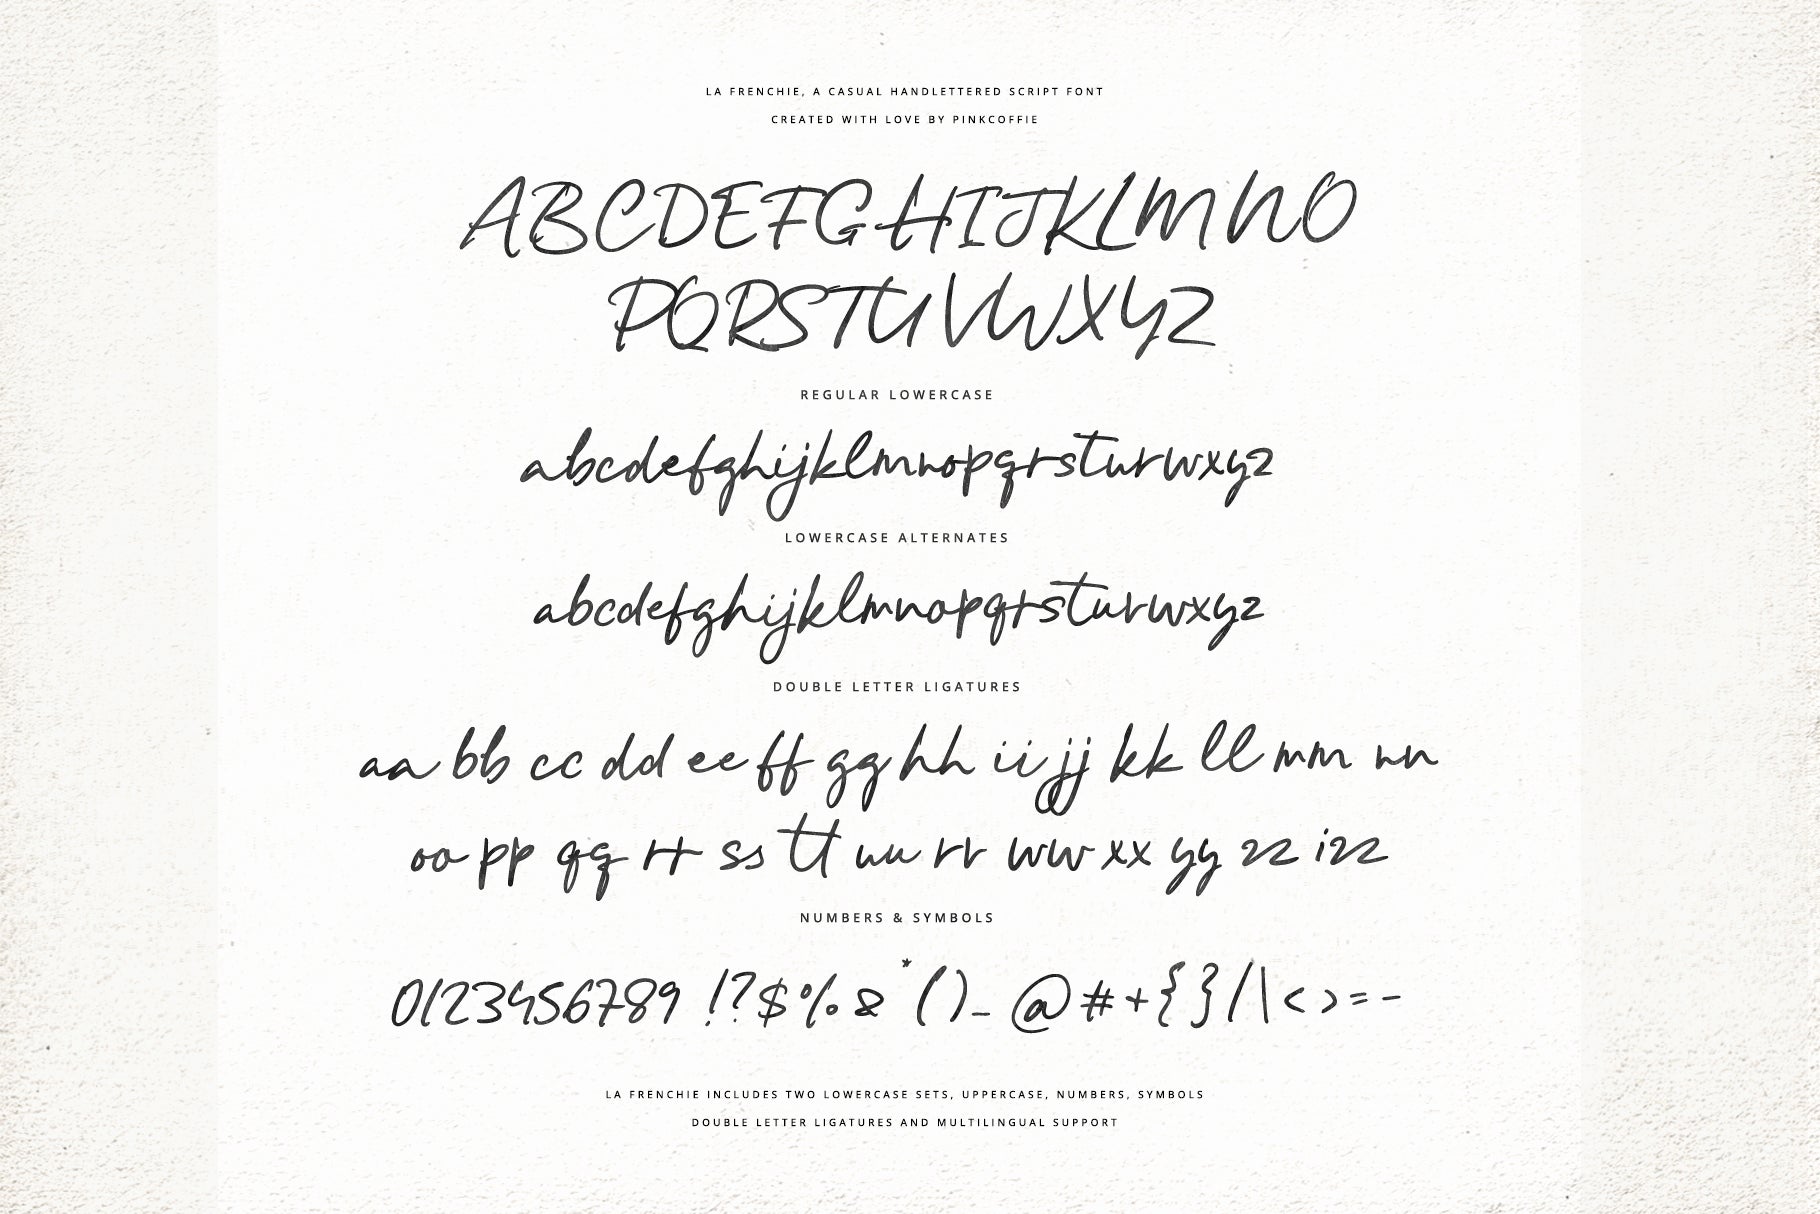 LA FRENCHIE, A CASUAL HANDLETTERED SCRIPT FONT
CREATED WITH LOVE BY PINKCOFFIE
ABCDEFGHIJKLMNO
PQRSTUVWXYZ
REGULAR LOWERCASE
abcdefghijklmnopqrstuvwxyz
LOWERCASE ALTERNATES
abcdefghijklmnopqrstuvwxyz
DOUBLE LETTER LIGATURES
aa bb cc dd ee ff gg hh ii jj kk ll mm nn
oo pp qq rr ss tt uu vv ww xx yy zz izz
NUMBERS & SYMBOLS
0123456789 !?$%&*()_@#+{}/\<>=-
LA FRENCHIE INCLUDES TWO LOWERCASE SETS, UPPERCASE, NUMBERS, SYMBOLS
DOUBLE LETTER LIGATURES AND MULTILINGUAL SUPPORT